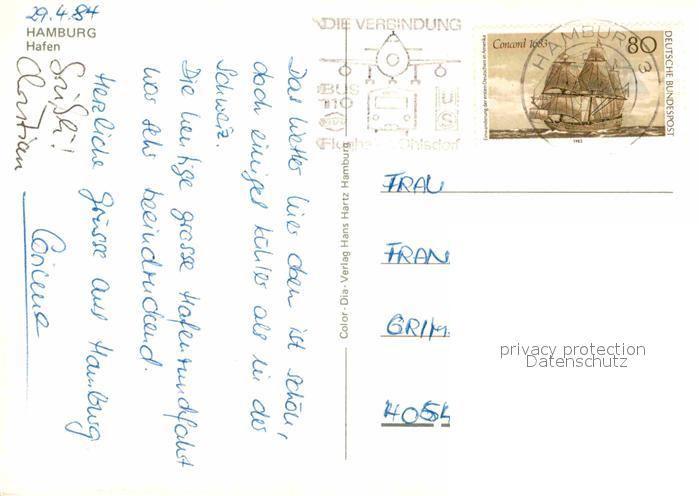 29.4.84
HAMBURG
Hafen
Das Wetter hier oben ist schön,
doch einiges kühler als in der
Schweiz.
Die heutige grosse Hafenrundfahrt
war sehr beeindruckend.
Herzliche Grüsse aus Hamburg
Corinne
Grüssli!
Christian
Color-Dia-Verlag Hans Hartz Hamburg
DIE VERBINDUNG
BUS
110
U
S
Flughafen Ohlsdorf
HAMBURG
Concord 1683
80
DEUTSCHE BUNDESPOST
Einwanderung der ersten Deutschen in Amerika
1983
FRAU
FRAN
GRIM
4054
privacy protection
Datenschutz